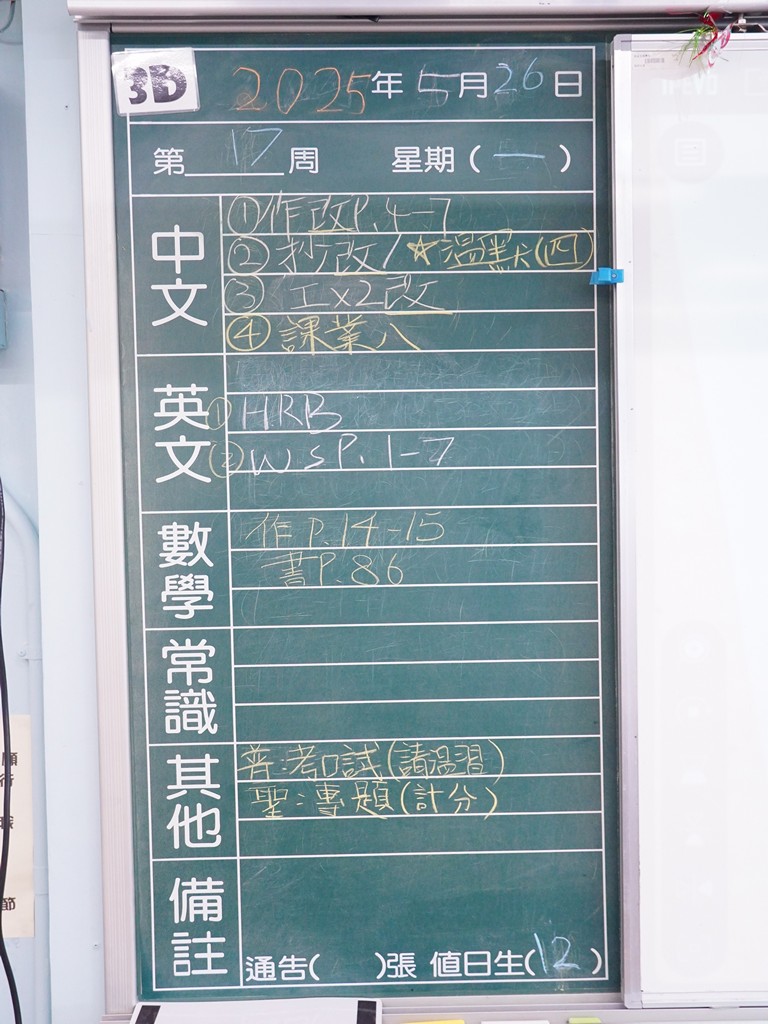 3D 2025年5月26日
第17周 星期(一)
中文
①作改P.4-7
②抄改1 ☆溫默(四)
③工x2改
④課業八
英文
①HRB
②WSP.1-7
數學
作P.14-15
書P.86
常識
其他
普:考口試(請溫習)
聖:專題(計分)
備註
通告( )張 值日生(12)